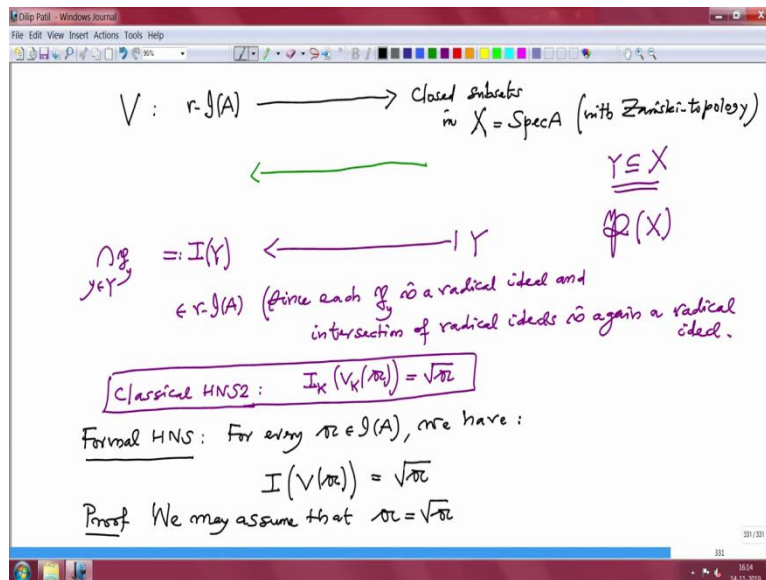 Dilip Patil - Windows Journal
File Edit View Insert Actions Tools Help
95%
V : r-I(A) ⟶ closed subsets
in X = Spec A (with Zariski-topology)
⟵ Y ⊆ X
𝔓(X)
⋂ 𝔭_y =: I(Y) ⟵| Y
y∈Y
∈ r-I(A) (since each 𝔭_y is a radical ideal and
intersection of radical ideals is again a radical
ideal.
Classical HNS2 : I_K (V_K(𝔞)) = √𝔞
Formal HNS : For every 𝔞 ∈ I(A), we have :
I(V(𝔞)) = √𝔞
Proof We may assume that 𝔞 = √𝔞
331/331
331
16:14
14-11-2019